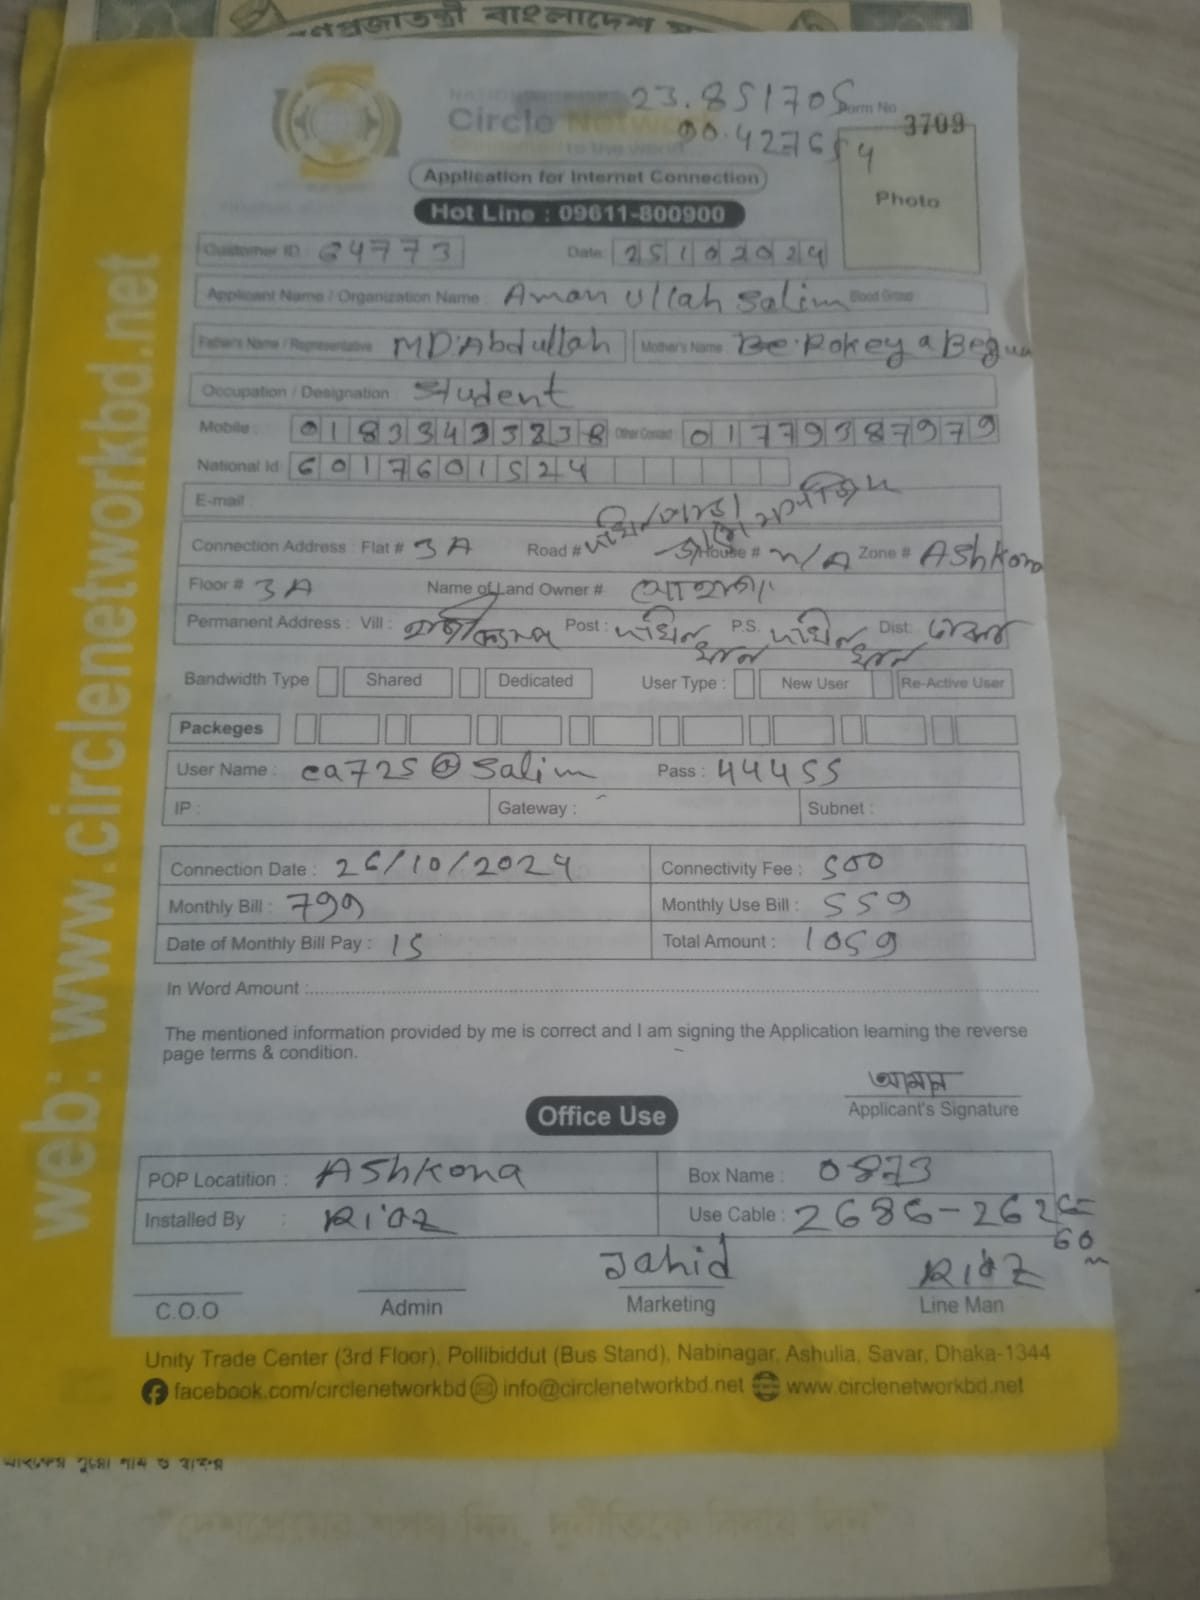 গণপ্রজাতন্ত্রী বাংলাদেশ
23.851705
90.427654
Circle Network
to the world...
Form No 3709
Application for Internet Connection
Photo
Hot Line : 09611-800900
Customer ID : 64773 Date: 25102024
Applicant Name / Organization Name : Aman Ullah Salim Blood Group
Father's Name / Representative MD.Abdullah Mother's Name : Rokeya Begum
Occupation / Designation : Student
Mobile : Other Contact : 01779387979
National Id 6017601524
E-mail
Connection Address : Flat # 3A Road # House # n/A Zone # Ashkona
Floor # 3A Name of Land Owner #
Permanent Address : Vill : Post : দক্ষিন খান P.S. দক্ষিন খান Dist: ঢাকা
Bandwidth Type Shared Dedicated User Type : New User Re-Active User
Packeges
User Name : ca725@salim Pass : 44455
IP : Gateway : Subnet :
Connection Date : 26/10/2024 Connectivity Fee : 500
Monthly Bill : 799 Monthly Use Bill : 559
Date of Monthly Bill Pay : 15 Total Amount : 1059
In Word Amount :
The mentioned information provided by me is correct and I am signing the Application learning the reverse
page terms & condition.
আমান
Applicant's Signature
Office Use
POP Locatition : Ashkona Box Name : 0873
Installed By : Riaz Use Cable : 2686-262
60
m
Jahid Riaz
C.O.O Admin Marketing Line Man
Unity Trade Center (3rd Floor), Pollibiddut (Bus Stand), Nabinagar, Ashulia, Savar, Dhaka-1344
facebook.com/circlenetworkbd info@circlenetworkbd.net www.circlenetworkbd.net
web: www.circlenetworkbd.net